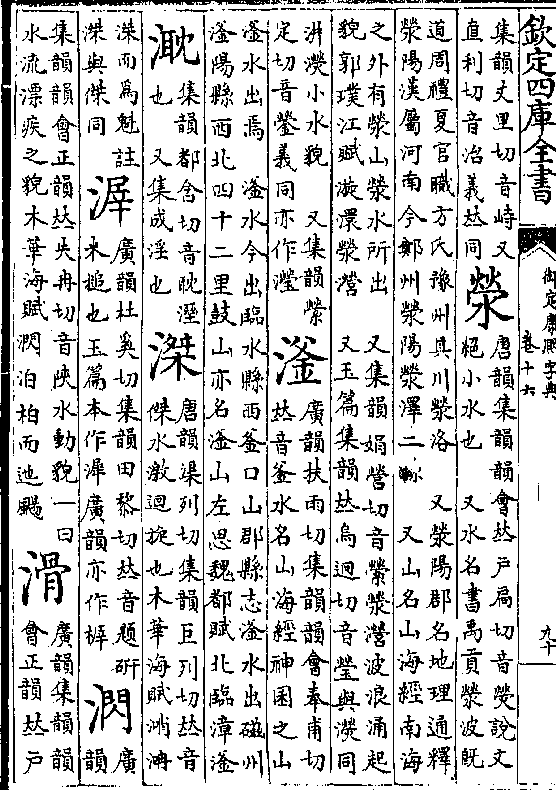 欽定四庫全書
御定康熙字典
卷十六
九十
集韻丈里切音峙又
直利切音治義𠀤同
滎
唐韻集韻韻會𠀤戸扃切音熒說文
絕小水也 又水名書禹貢滎波旣
道周禮夏官職方氏豫州其川滎洛 又滎陽郡名地理通釋
滎陽漢屬河南今鄭州滎陽滎澤二縣 又山名山海經南海
之外有滎山滎水所出 又集韻娟營切音縈滎瀯波浪涌起
貌郭璞江賦漩澴滎瀯 又玉篇集韻𠀤烏迥切音瑩與濙同
汫濙小水貌 又集韻縈
定切音鎣義同亦作瀅
滏
廣韻扶雨切集韻韻會奉甫切
𠀤音釜水名山海經神囷之山
滏水出焉 滏水今出臨水縣西滏口山郡縣志滏水出磁州
滏陽縣西北四十二里鼓山亦名滏山左思魏都賦北臨漳滏
集韻都含切音耽溼
也 又集成淫也
滐
唐韻渠列切集韻巨列切𠀤音
傑水激迴旋也木華海賦
滐而爲魁註
滐與傑同
廣韻杜奚切集韻田黎切𠀤音題硏
米槌也玉篇本作漽廣韻亦作
㴸
廣
韻
集韻韻會正韻𠀤失冉切音陝水動貌一曰
水流漂疾之貌木華海賦㴸泊柏而迆颺
滑
廣韻集韻韻
會正韻𠀤戸